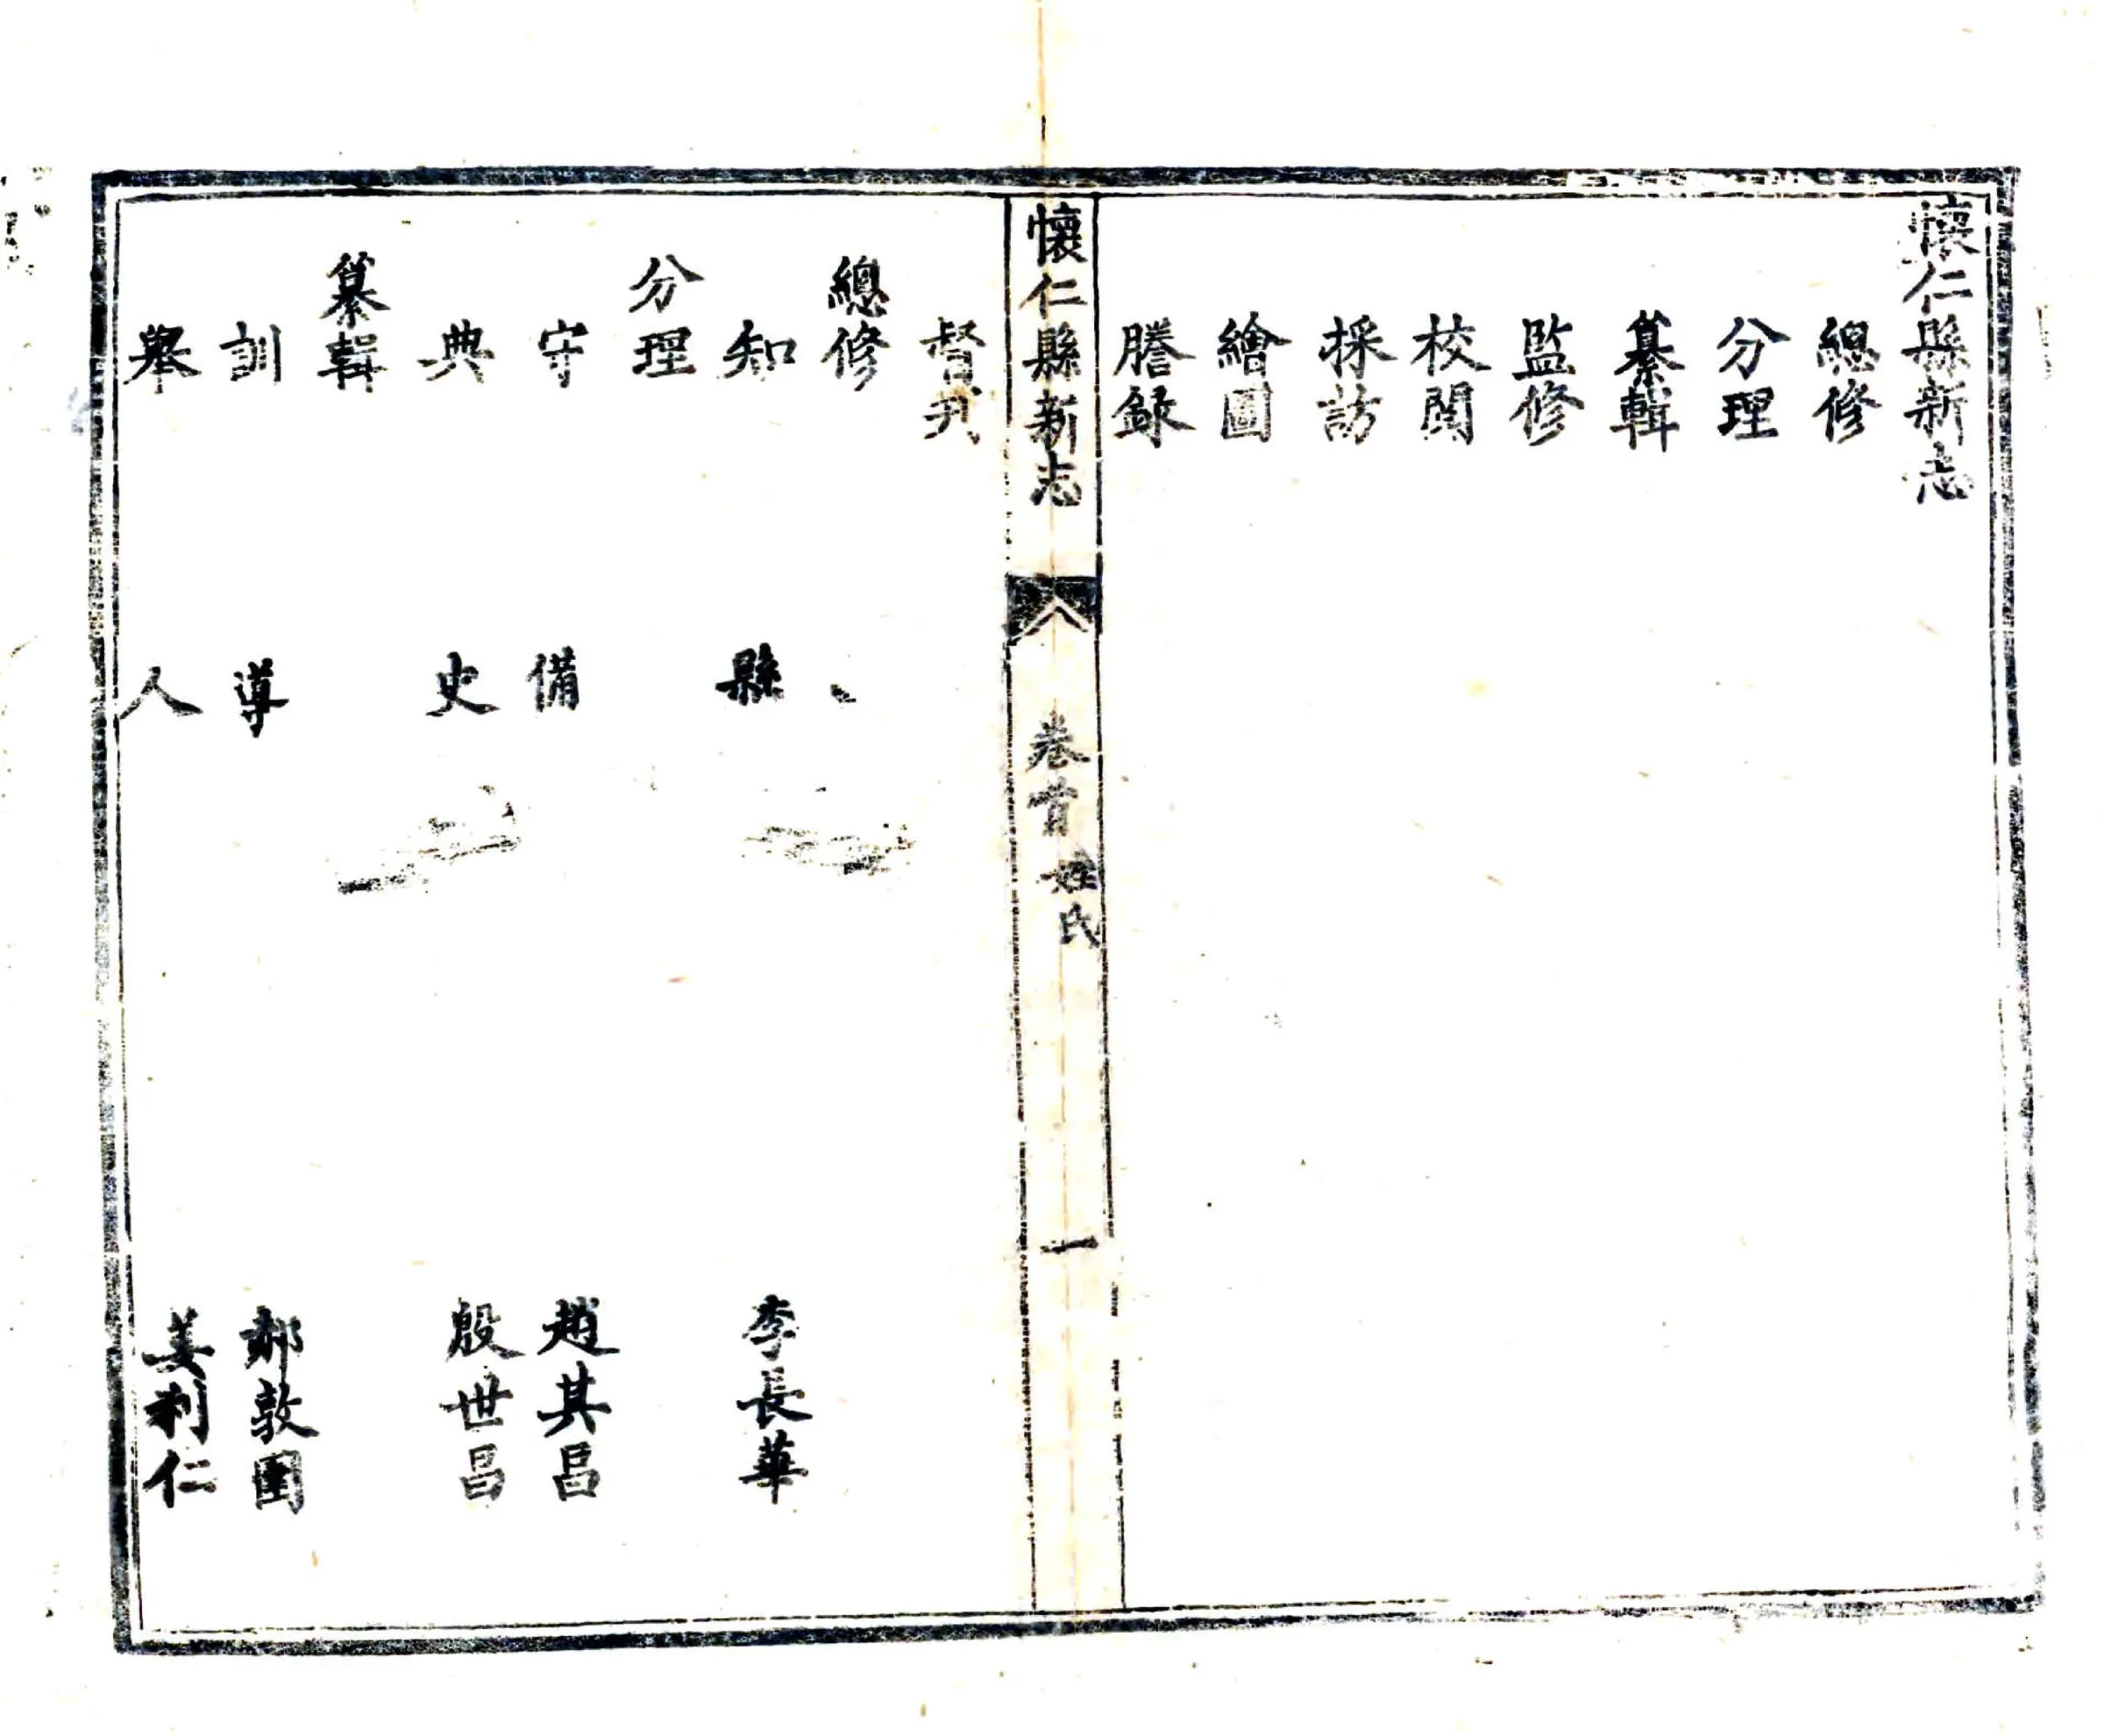 懷仁縣新志
總修
分理
纂輯
監修
校閱
採訪
繪圖
謄錄
懷仁縣新志 卷首 姓氏 一
督刋
總修
知縣 李長華
分理
守備 趙其昌
典史 殷世昌
纂輯
訓導 郝敦圉
舉人 姜利仁